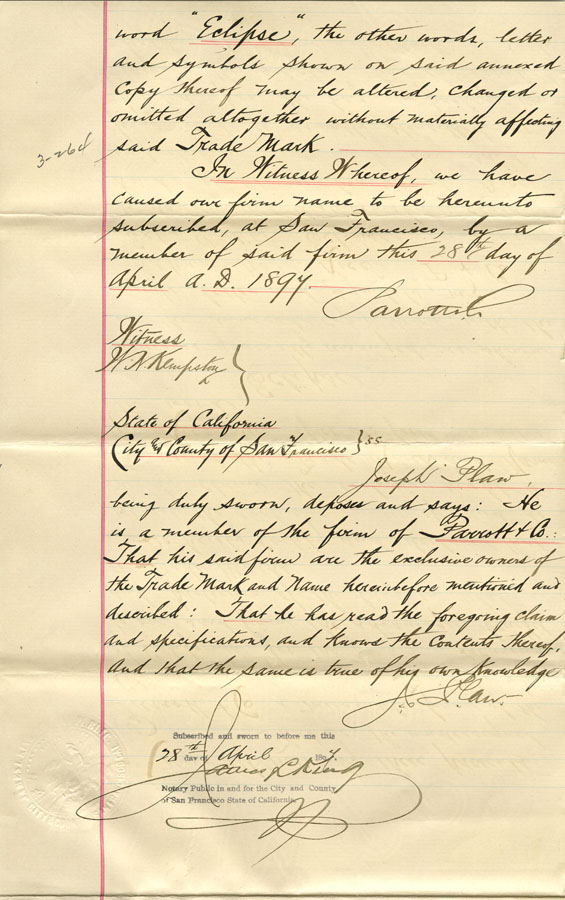 word "Eclipse", the other words, letter
and symbols shown on said annexed
Copy thereof may be altered, changed or
omitted altogether without materially affecting
said Trade Mark.
3-264
In Witness Whereof, we have
caused our firm name to be hereunto
subscribed, at San Francisco, by a
member of said firm this 28th day of
April A.D. 1897.
Parrott & Co
Witness
W. N. Kempston
State of California
City & County of San Francisco } ss
Joseph Plaw,
being duly sworn, deposes and says: He
is a member of the firm of Parrott & Co.:
That his said firm are the exclusive owners of
the Trade Mark and Name hereinbefore mentioned and
described: That he has read the foregoing claim
and specifications, and knows the Contents thereof,
and that the same is true of his own knowledge
J. Plaw.
Subscribed and sworn to before me this
28th day of April 1897.
James L. King
Notary Public in and for the City and County
of San Francisco State of California.